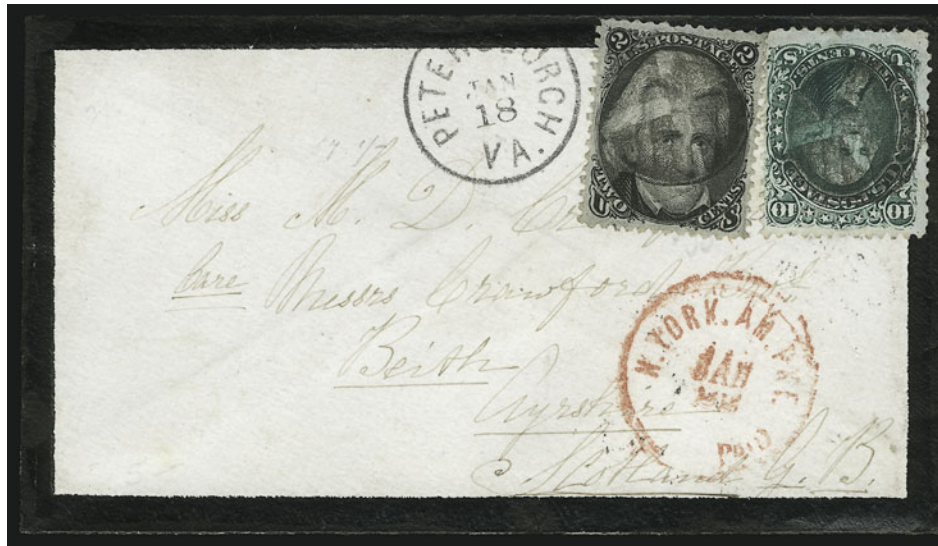 PETERSBURGH
JAN
18
VA.
2 U.S. POSTAGE 2
TWO CENTS
U S
10 U.S. POSTAGE 10
Miss M. D.
Care Messrs Crawford
Beith
Ayrshire
Scotland G. B.
N. YORK. AM. PKT.
JAN
PAID